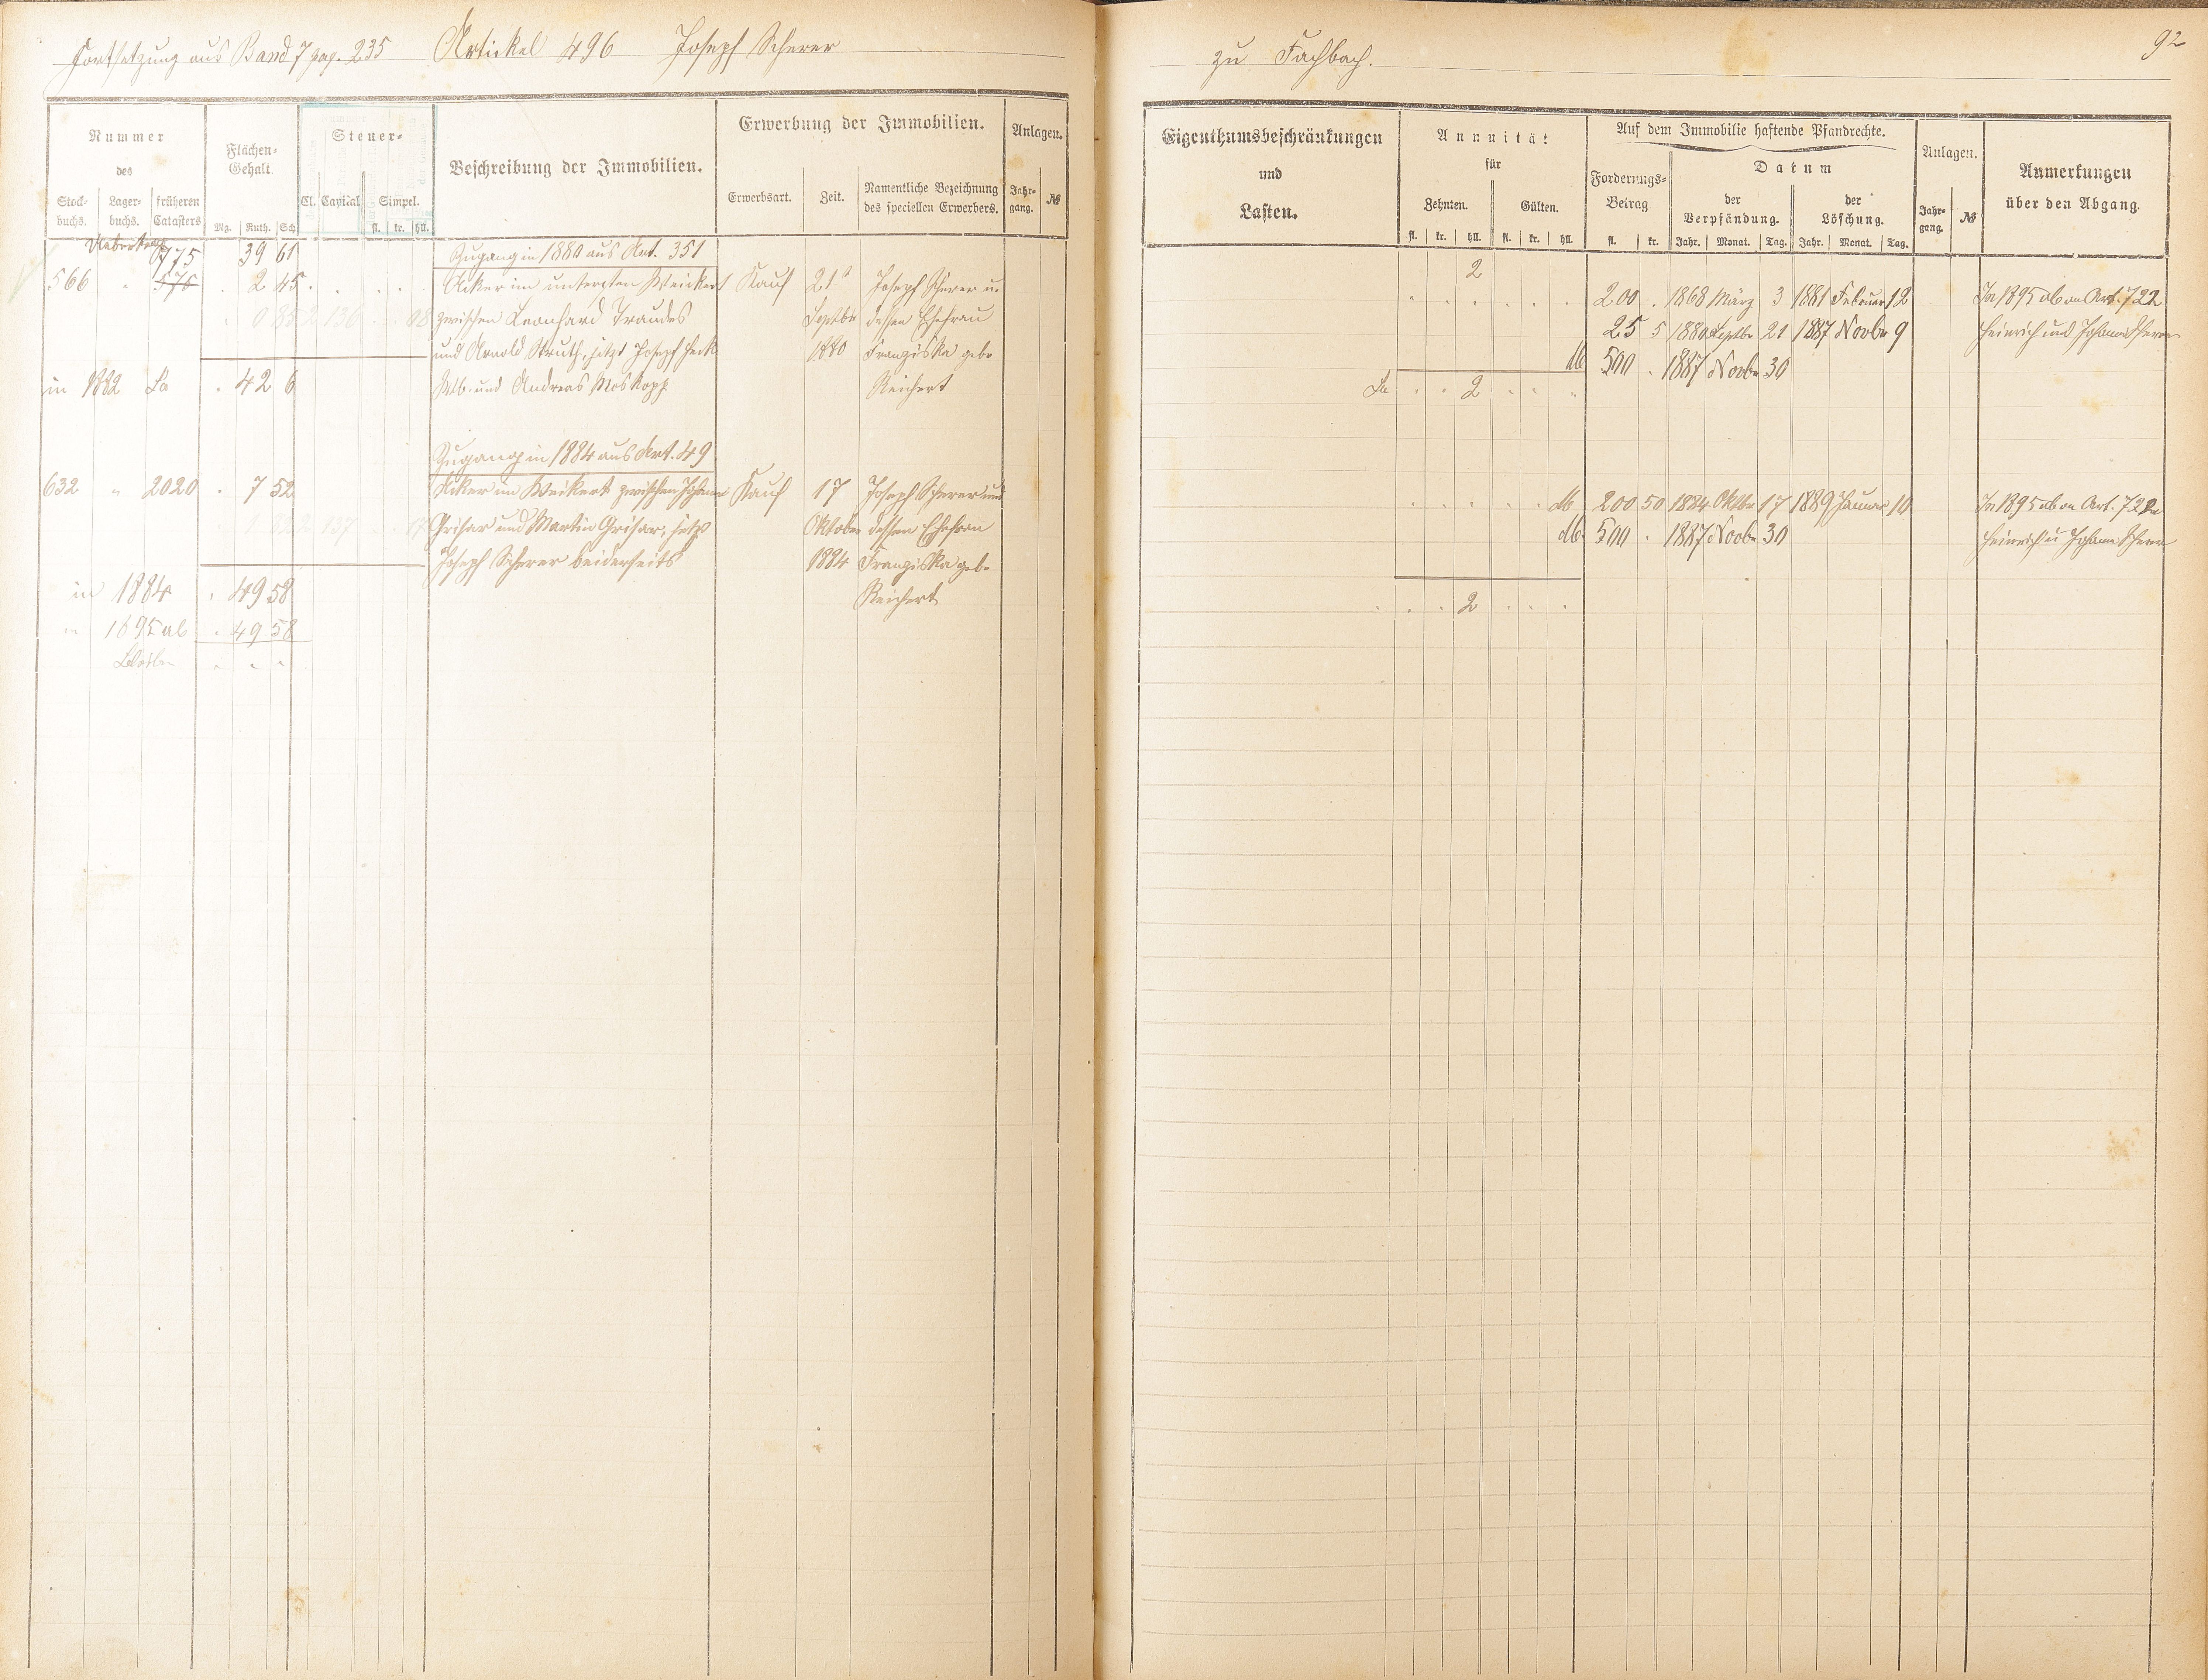 Fortsetzung aus Band 7 pag. 235 Artickel 496 Joseph Scherer
Nummer
des
Stock-
buchs.
Lager-
buchs.
früheren
Catasters
Flächen-
Gehalt.
Mg. Ruth. Sch.
Steuer-
Cl. Capital Simpel.
fl. kr. hll.
Beschreibung der Immobilien.
Erwerbung der Immobilien.
Erwerbsart. Zeit. Namentliche Bezeichnung
des speciellen Erwerbers.
Anlagen.
Jahr-
gang. №
39 61 Zugang in 1880 aus Art. 351
566 " 576 . 2 45 Acker im untersten Weickert Kauf 21 Joseph Scherer u.
zwischen Leonhard Traudes Septbr dessen Ehefrau
und Arnold Struth, jetzt Joseph Heck 1880 Franziska geb.
in 1882 Sa . 42 6 Wb. und Andreas Moskopp Reichert
Zugang in 1884 aus Art. 49
632 " 2020 . 7 52 Acker im Weikert zwischen Johann Kauf 17 Joseph Scherer und
Grisar und Martin Grisar, jetzt Oktober dessen Ehefrau
Joseph Scherer beiderseits 1884 Franziska geb.
in 1884 . 49 58 Reichert
" 1895 ab . 49 58
" " "
zu Fachbach.
92
Eigenthumsbeschränkungen
und
Lasten.
Annuität
für
Zehnten. Gülten.
fl. kr. hll. fl. kr. hll.
Auf dem Immobilie haftende Pfandrechte.
Forderungs-
Betrag
fl. kr.
Datum
der
Verpfändung.
Jahr. Monat. Tag.
der
Löschung.
Jahr. Monat. Tag.
Anlagen.
Jahr-
gang. №
Anmerkungen
über den Abgang.
2
200 . 1868 März 3 1881 Februar 12 In 1895 ab an Art. 722
25 5 1880 Septbr 21 1887 Novbr 9 Heinrich und Johann Scherer
M 500 . 1887 Novbr 30
Sa . . 2 . . "
M 200 50 1884 Oktbr 17 1889 Januar 10 In 1895 ab an Art. 722
M 500 . 1887 Novbr 30 Heinrich u Johann Scherer
. . . 2 . . .